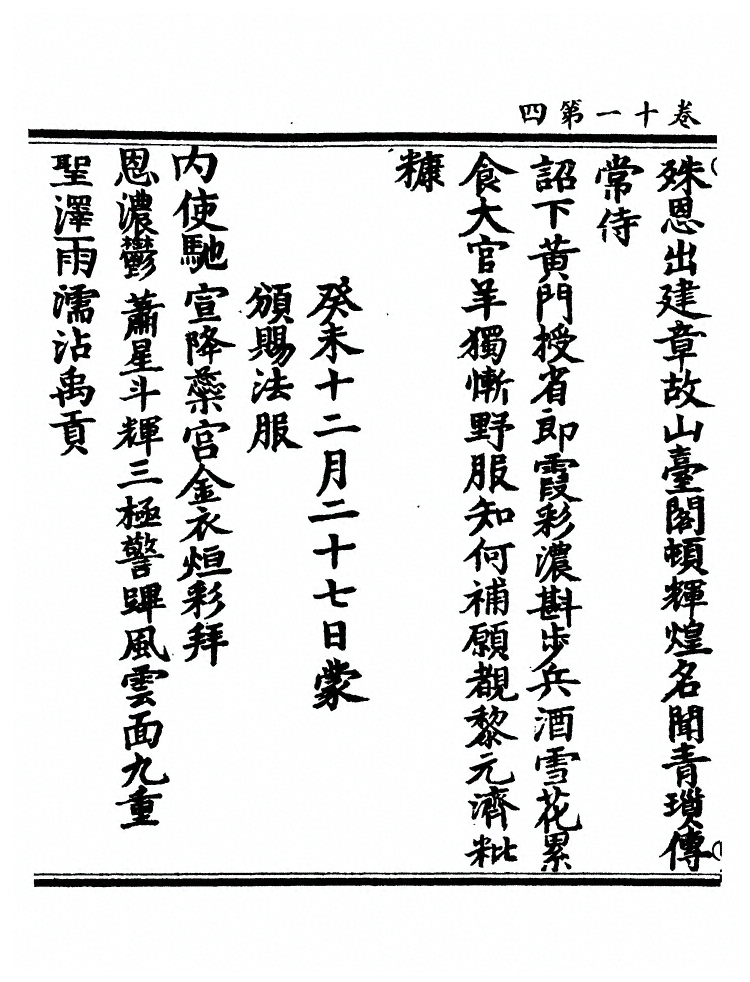 卷十一第四
殊恩出建章故山臺閣頓輝煌名聞青瑣傳
常侍
詔下黄門授省郎霞彩濃斟步兵酒雪花累
食大官羊獨慚野服知何補願覩黎元濟粃
糠
癸未十二月二十七日蒙
頒賜法服
内使馳宣降蘂宮金衣烜彩拜
恩濃鬱蕭星斗輝三極警蹕風雲面九重
聖澤雨濡沾禹貢